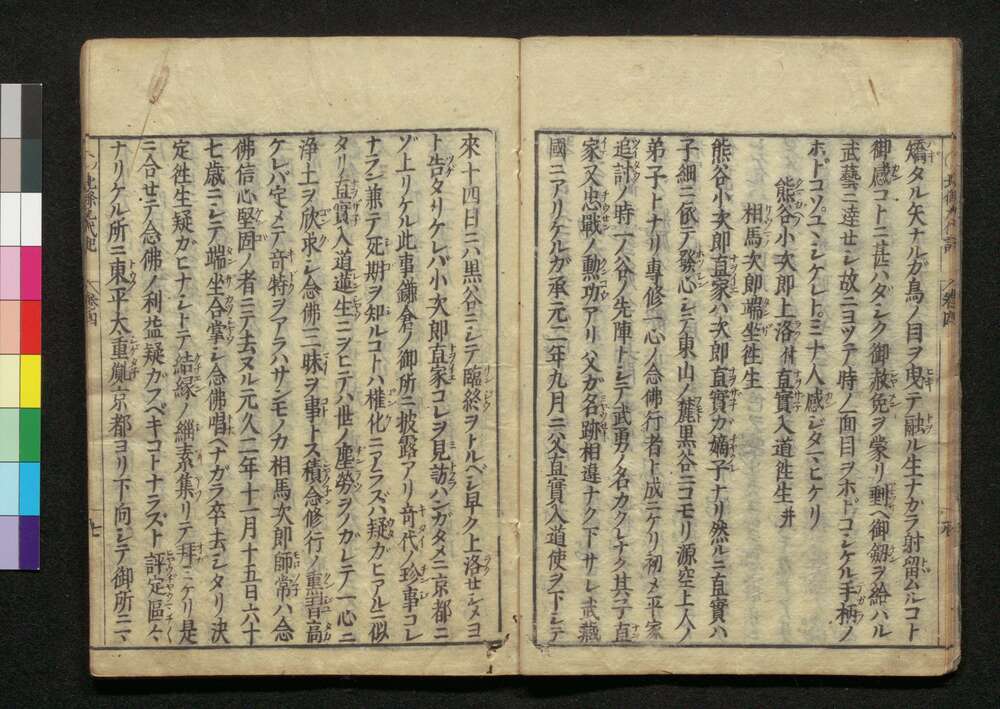 矯タル矢ナルガ鳥ノ目ヲ曳テ融ル生ナカラ射留ルコト
御感コトニ甚ハダシク御赦免ヲ蒙リ剰ヘ御劔ヲ給ハル
武藝ニ達セシ故ニヨツテ時ノ面目ヲホドコシケル手柄ノ
ホドコソユヽシケレトミナ人感シタマヒケリ
熊谷小次郎上洛付直實入道徃生并
相馬次郎端坐徃生
熊谷小次郎直家ハ次郎直實ガ嫡子ナリ然ルニ直實ハ
子細ニ依テ發心シテ東山ノ麓黒谷ニコモリ源空上人ノ
弟子トナリ專修一心ノ念佛行者ト成ニケリ初メ平家
追討ノ時一ノ谷ノ先陣トシテ武勇ノ名カクレナク其子直
家又忠戰ノ勲功アリ父ガ名跡相違ナク下サレ武藏
國ニアリケルガ承元二年九月ニ父直實入道使ヲ下シテ
來十四日ニハ黒谷ニシテ臨終ヲトルベシ早ク上洛セシメヨ
ト告タリケレバ小次郎直家コレヲ見訪ハンガタメニ京都ニ
ゾ上リケル此事鎌倉ノ御所ニ披露アリ奇代ノ珍事コレ
ナラン兼テ死期ヲ知ルコトハ權化ニアラズハ疑ガヒアルニ似
タリ直實入道蓮生ニヲヒテハ世ノ塵勞ヲノガレテ一心ニ
浄土ヲ欣求シ念佛三昧ヲ事トス積念修行ノ薫習高
ケレバ定メテ奇特ヲアラハサンモノカ相馬次郎師常ハ念
佛信心堅固ノ者ニテ去ヌル元久二年十一月十五日六十
七歳ニシテ端坐合掌シ念佛唱ヘナガラ卒去シタリ決
定徃生疑ガヒナシトテ結縁ノ緇素集リテ拜ミケリ是
ニ合セテ念佛ノ利益疑ガフベキコトナラズト評定區々
ナリケル所ニ東平太重胤京都ヨリ下向シテ御所ニマ
北條九代記
卷四
七